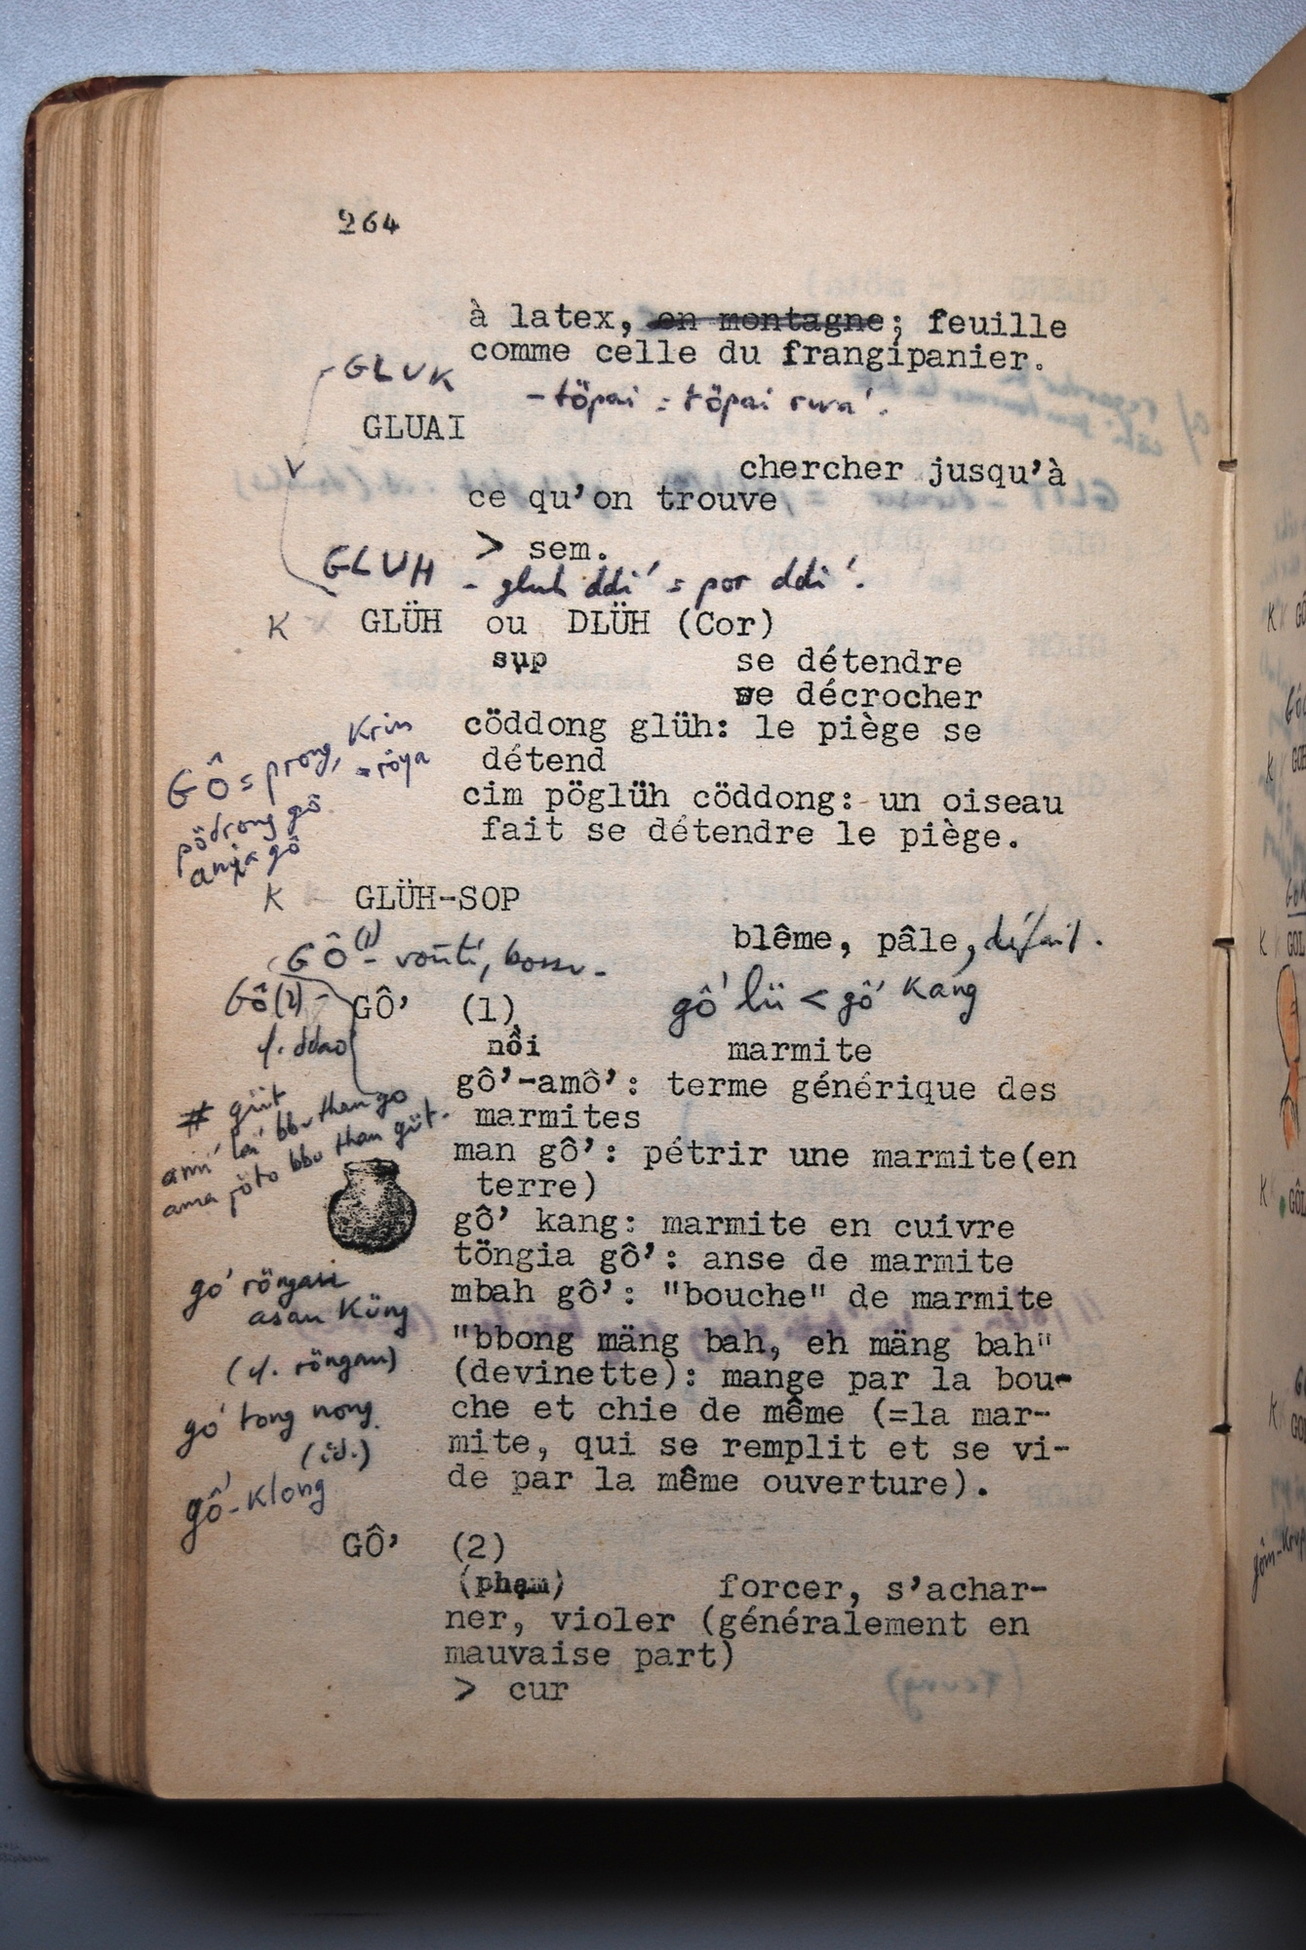 264
à latex, en montagne; feuille
comme celle du frangipanier.
GLUK - töpai = töpai rwa'.
GLUAI
chercher jusqu'à
ce qu'on trouve
> sem.
GLUH - gluh ddi' = por ddi'.
K GLÜH ou DLÜH (Cor)
sụp se détendre
se décrocher
cöddong glüh: le piège se
détend
cim pöglüh cöddong: un oiseau
fait se détendre le piège.
GÔ = prong, Krin
= röya
pödrong gô
anĭa gô
K GLÜH-SOP
blême, pâle, défait.
GÔ (1) - voûté, bossu -
GÔ (2) -
cf. ddao
gô' lü < gô' kang
GÔ' (1)
nồi marmite
gô'-amô': terme générique des
marmites
# güt
ami' lai' bbu than go
ama jöto bbu than güt.
man gô': pétrir une marmite(en
terre)
gô' kang: marmite en cuivre
töngia gô': anse de marmite
mbah gô': "bouche" de marmite
"bbong mäng bah, eh mäng bah"
(devinette): mange par la bou-
che et chie de même (=la mar-
mite, qui se remplit et se vi-
de par la même ouverture).
go' röngau
asau Küng
(cf. röngau)
go' tong nong
(id.)
gô'-klong
GÔ' (2)
(phạm) forcer, s'achar-
ner, violer (généralement en
mauvaise part)
> cur